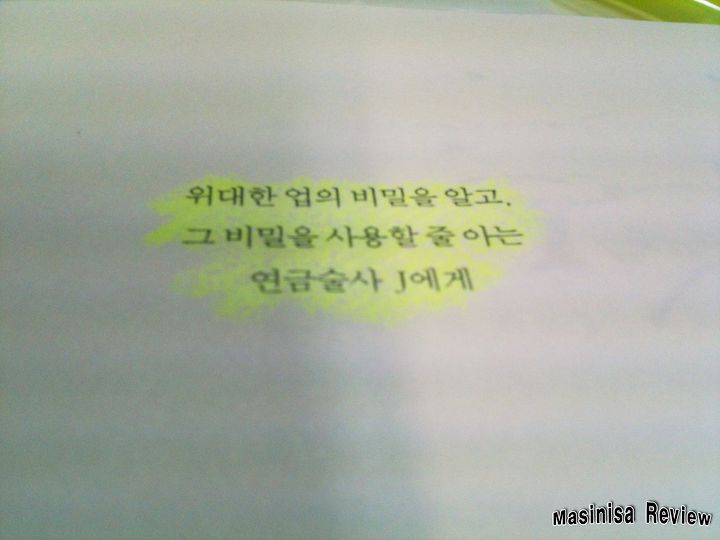 위대한 업의 비밀을 알고,
그 비밀을 사용할 줄 아는
연금술사 J에게
Masinisa Review